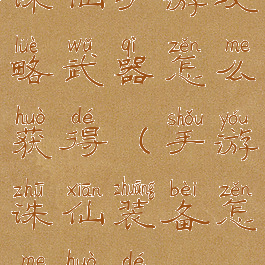 lüè wǔ qì zěn me
略武器怎么
huò dé shǒu yóu
获得（手游
zhū xiān zhuāng bèi zěn
诛仙装备怎
me huò dé